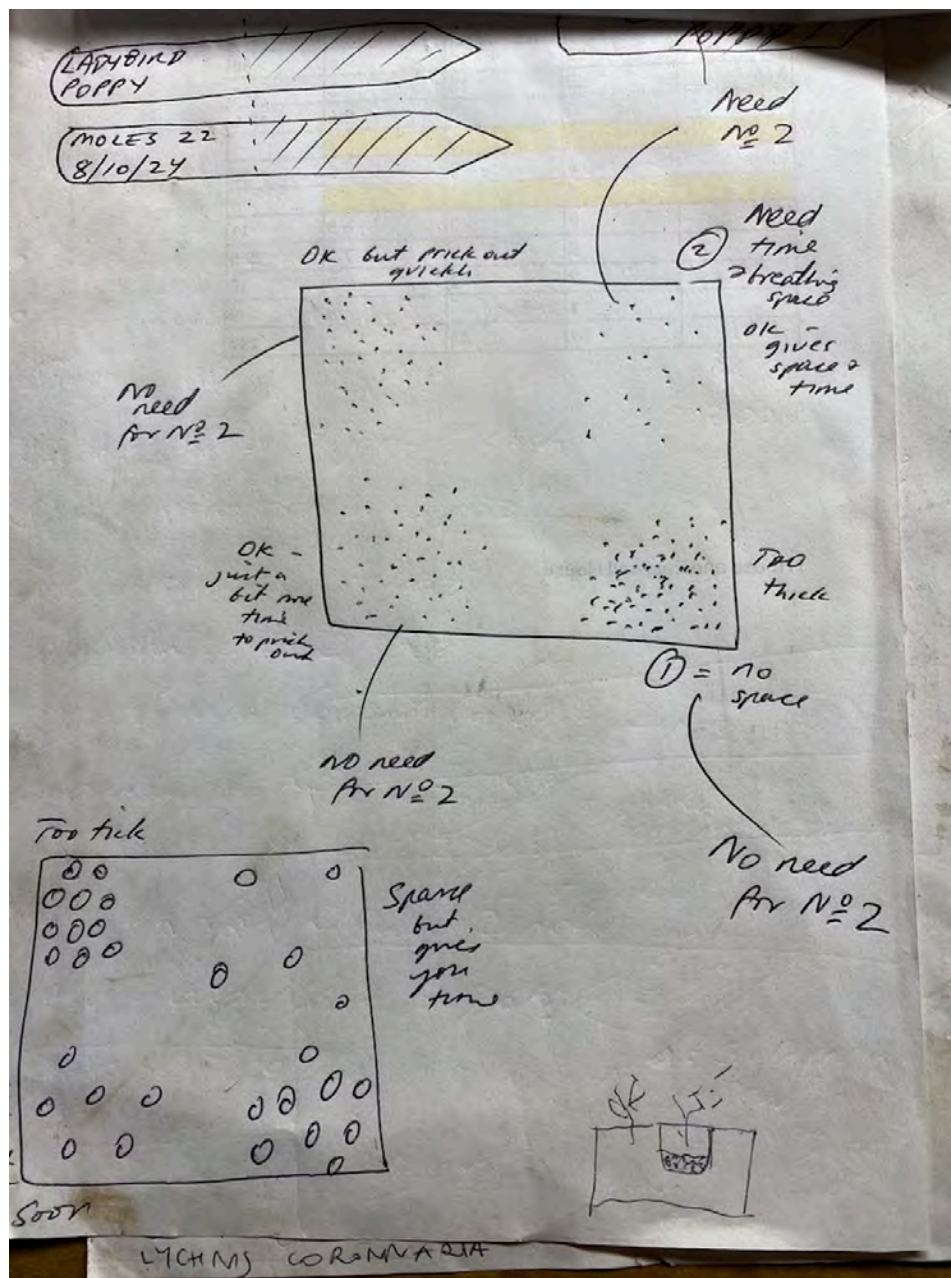 LADYBIRD
POPPY
POPPY
MOLES 22
8/10/24
Need
Nº 2
OK but prick out
quickly
② Need
time
& breathing
space
OK –
gives
space &
time
No
need
for Nº 2
OK –
just a
bit more
time
to prick
out
Too
thick
① = no
space
no need
for Nº 2
No need
for Nº 2
Too tick
Sparse
but
gives
you
time
OK
Soon
LYCHNIS CORONNARIA